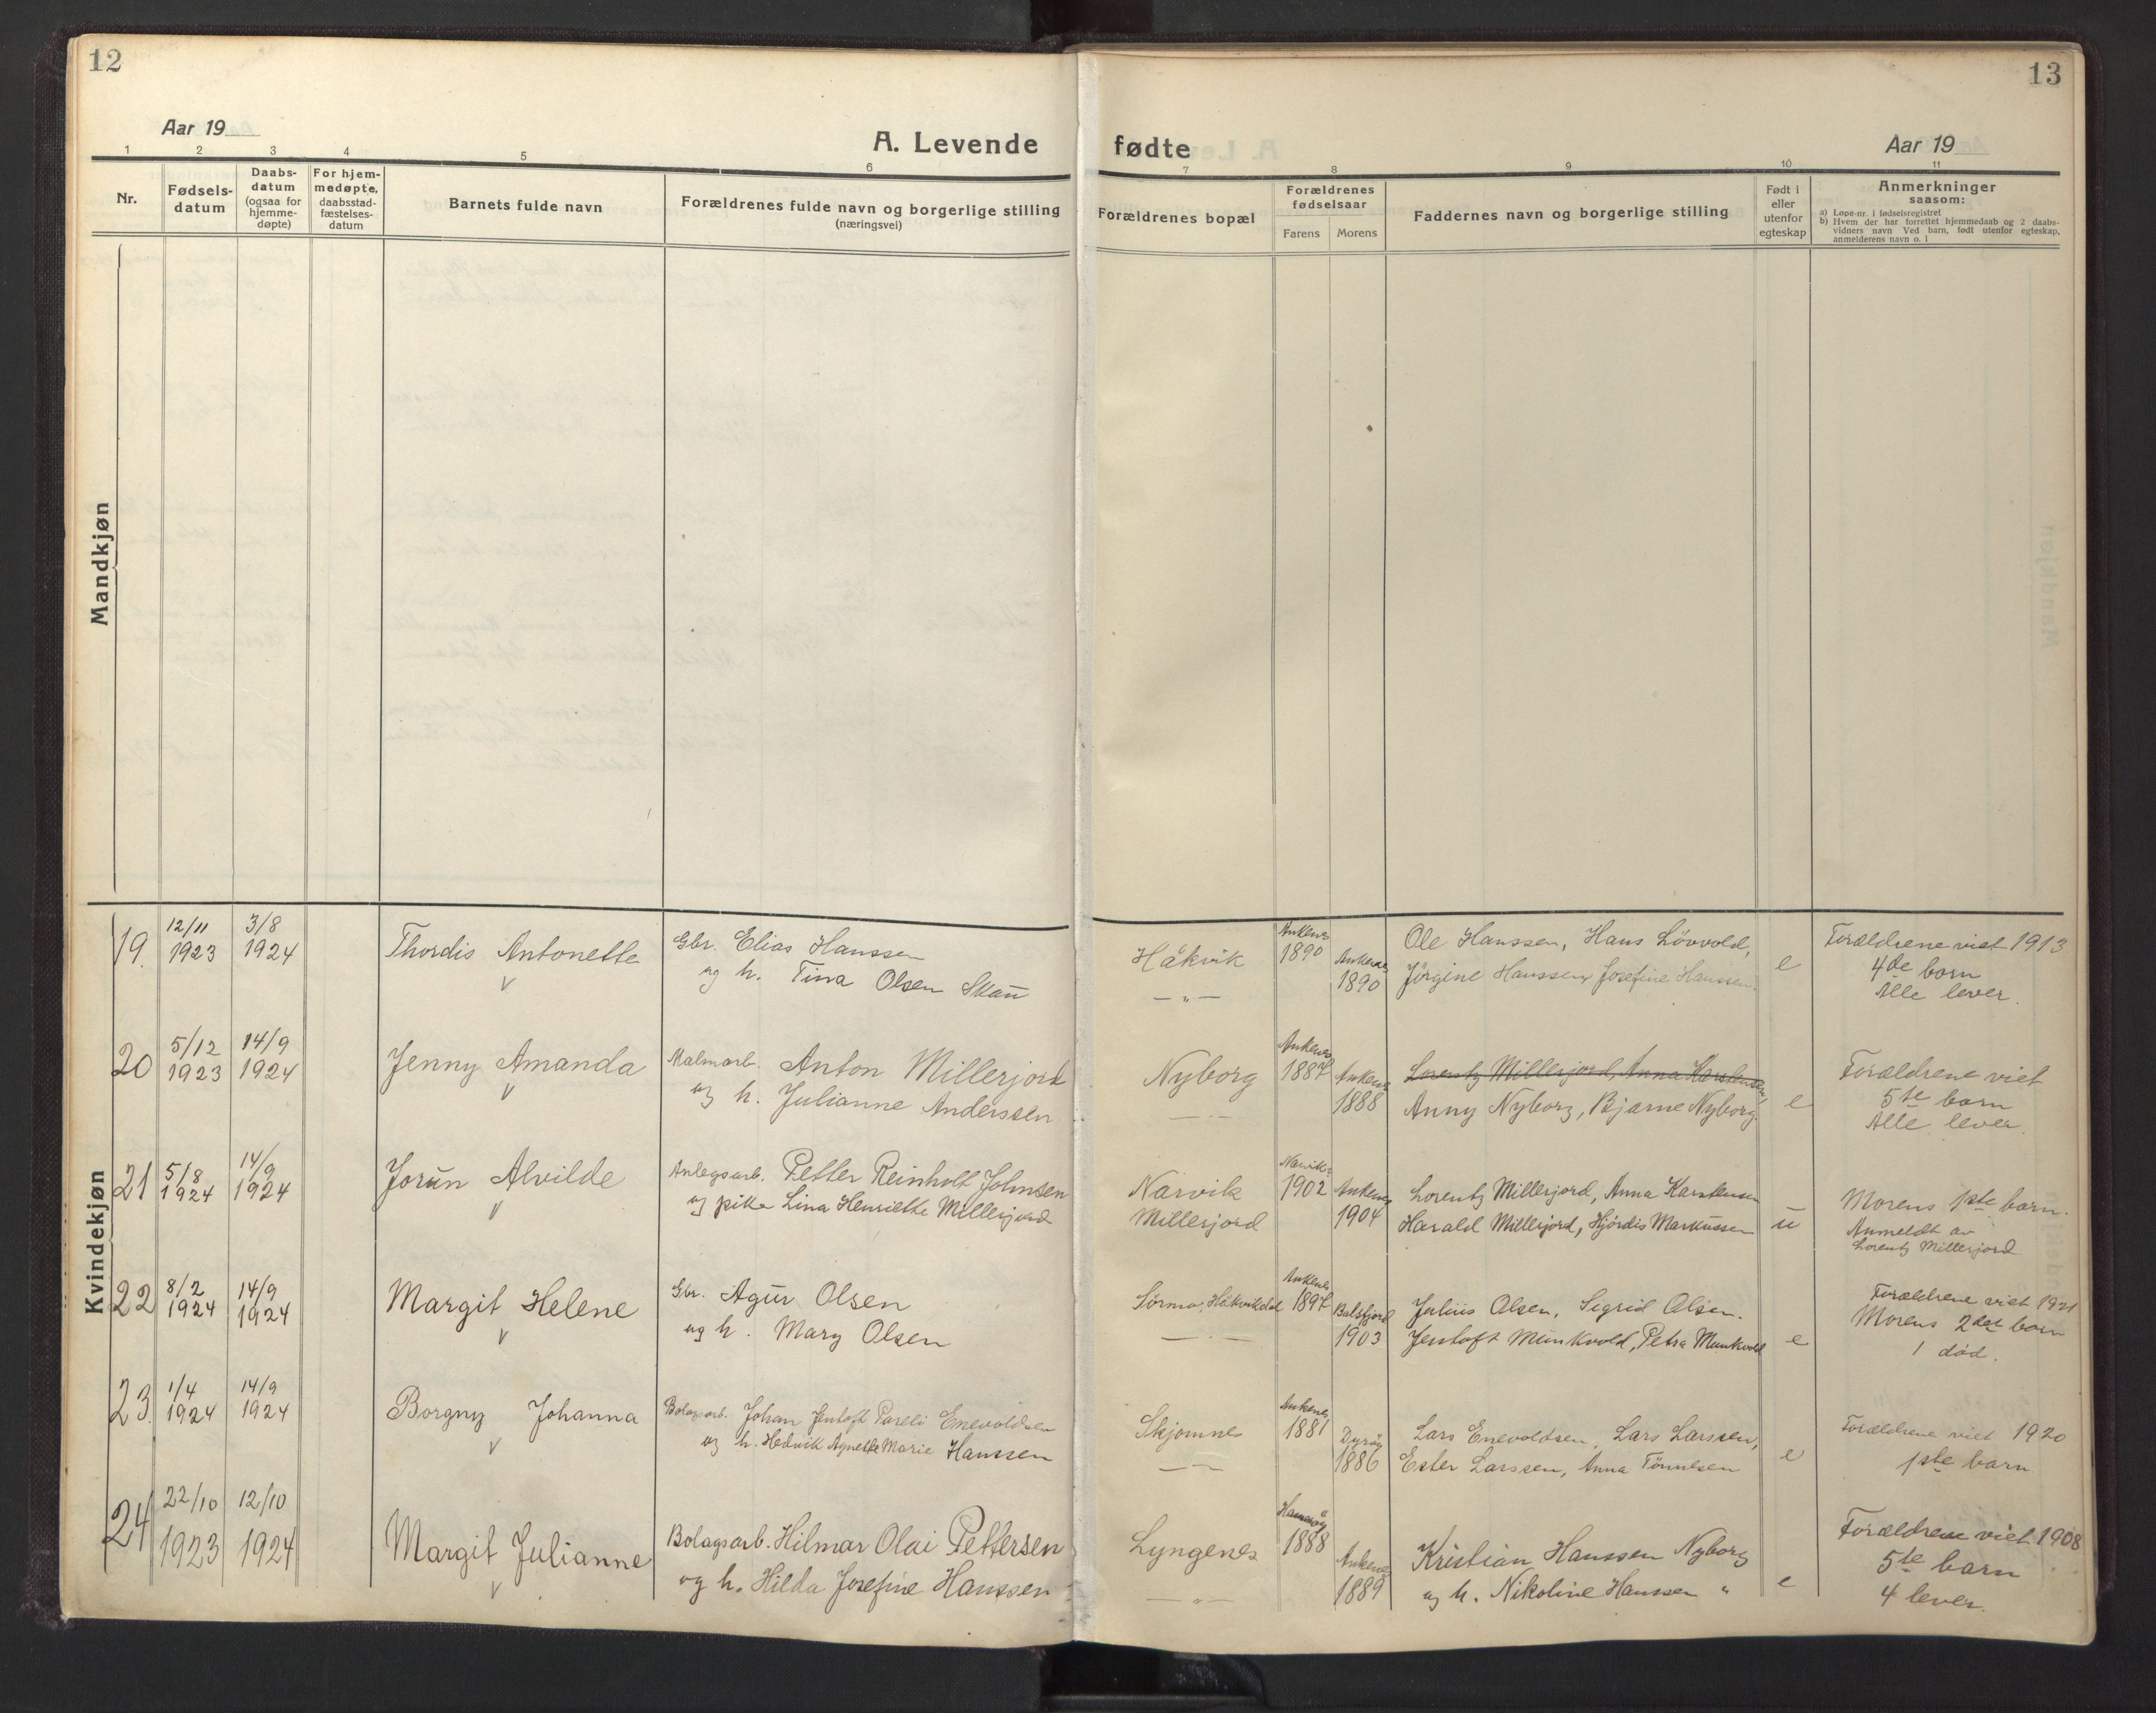 12
13
Aar 19
A. Levende
fødte
Aar 19
1
2
3
4
5
6
7
8
9
10
11
Nr.
Fødsels-
datum
Daabs-
datum
(ogsaa for
hjemme-
døpte)
For hjem-
medøpte,
daabsstad-
fæstelses-
datum
Barnets fulde navn
Forældrenes fulde navn og borgerlige stilling
(næringsvei)
Forældrenes bopæl
Forældrenes
fødselsaar
Farens
Morens
Faddernes navn og borgerlige stilling
Født i
eller
utenfor
egteskap
Anmerkninger
saasom:
a) Løpe-nr. i fødselsregistret
b) Hvem der har forrettet hjemmedaab og 2 daabs-
vidners navn Ved barn, født utenfor egteskap,
anmelderens navn o. l
Mandkjøn
Kvindekjøn
19.
12/11
1923
3/8
1924
Thordis Antonette
Gbr. Elias Hanssen
og h. Tina Olsen Skau
Håkvik
— " —
Ankenes
1890
Ankenes
1890
Ole Hanssen, Hans Lövvold,
Jörgine Hanssen, Josefine Hanssen.
e
Forældrene viet 1913
4de barn
Alle lever.
20
5/12
1923
14/9
1924
Jenny Amanda
Malmarb. Anton Millerjord
og h. Julianne Anderssen
Nyborg
Ankenes
1887
Ankenes
1888
Lorentz Millerjord, Anna Karstensen,
Anny Nyborg, Bjarne Nyborg.
e
Forældrene viet
5te barn
Alle lever.
21
5/8
1924
14/9
1924
Jorun Alvilde
Anlegsarb. Petter Reinholt Johnsen
og pike Lina Henriette Millerjord
Narvik
Millerjord
Narvik
1902
Ankenes
1904
Lorentz Millerjord, Anna Karstensen
Harald Millerjord, Hjördis Markussen
u
Morens 1ste barn.
Anmeldt av
Lorentz Millerjord
22
8/2
1924
14/9
1924
Margit Helene
Gbr. Agur Olsen
og h. Mary Olsen
Sörmo, Håkvikdal
Ankenes
1897
Balsfjord
1903
Julius Olsen, Sigrid Olsen.
Jentoft Munkvold, Petra Munkvold
e
Forældrene viet 1921
Morens 2det barn
1 död.
23.
1/4
1924
14/9
1924
Borgny Johanna
Bolagsarb. Johan Jentoft Pareli Enevoldsen
og h. Hedvik Agnethe Marie Hanssen
Skjomnes
Ankenes
1881
Dyröy
1886
Lars Enevoldsen, Lars Larssen,
Ester Larssen, Anna Tönnesen
e
Forældrene viet 1920
1ste barn
24
22/10
1923
12/10
1924
Margit Julianne
Bolagsarb. Hilmar Olai Pettersen
og h. Hilda Josefine Hanssen
Lyngenes
— " —
Hamarøy
1888
Ankenes
1889
Kristian Hanssen Nyborg
og h. Nikoline Hanssen "
e
Forældrene viet 1908
5te barn
4 lever.